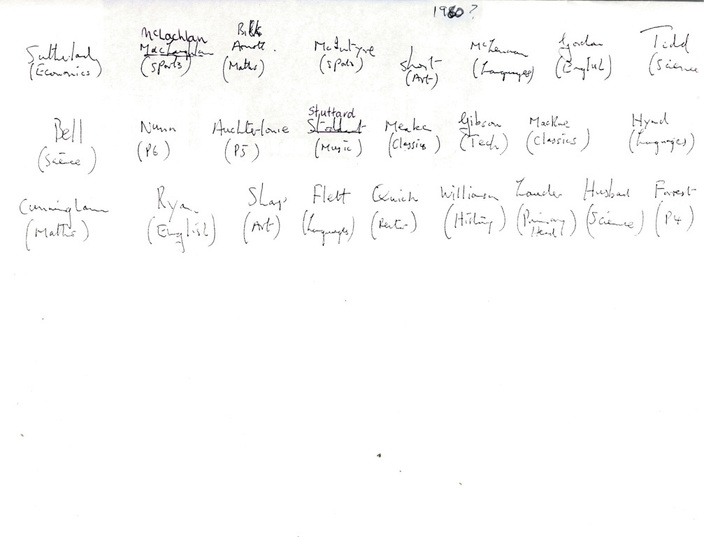 1980?
McLachlan Bill
Sutherland MacLaughlan Arnott. McIntyre Short McLennan Gordon Tidd
(Economics) (Sports) (Maths) (Sports) (Art) (Languages) (English) (Science
Stuttard
Bell Nunn Auchterlonie Stoddart Meakee Gibson MacKne Hynd
(Science) (P6) (P5) (Music) (Classics) (Tech) (Classics) (Languages)
Cunningham Ryan Sharp Flett Quick Williamson Lauder Husband Forrest
(Maths) (English) (Art) (Languages) (Rector) (History) (Primary Head) (Science) (P4)